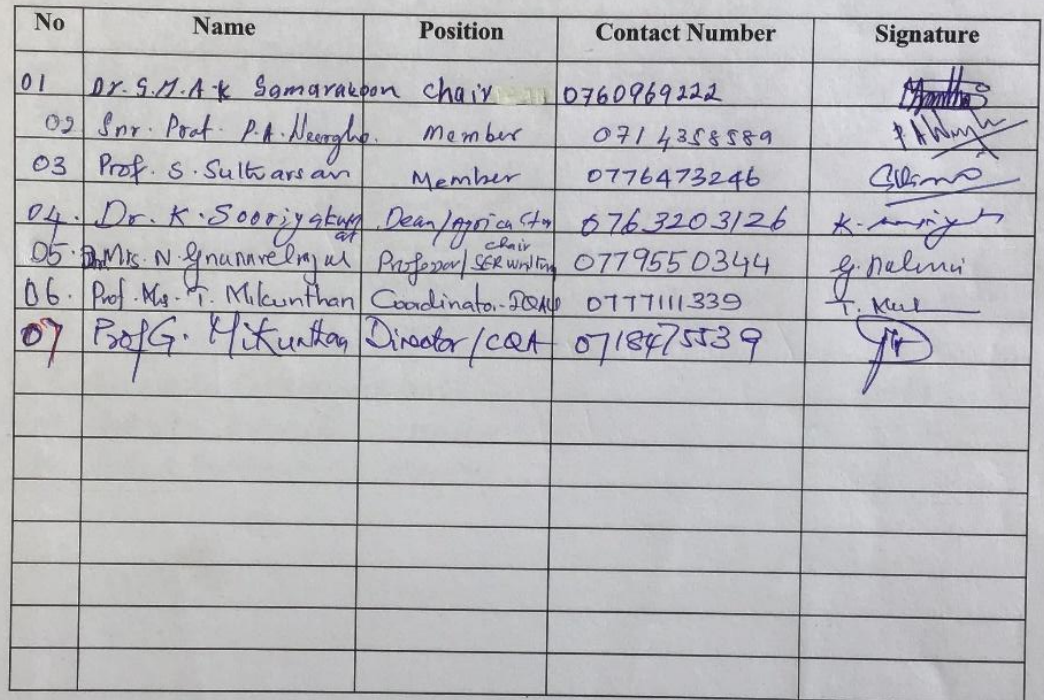 No Name Position Contact Number Signature
01 Dr. S.M.A.K Samarakoon Chair 0760969222
02 Snr. Prof. P.A. Member 0714358589
03 Prof. S. Sutharsan Member 0776473246
04. Dr. K. Sooriyakumar Dean/Agriculture 0763203126 K.
05. Mrs. N. Gnanavelrajah Professor/ Chair SER writing 0779550344 G.
06. Prof. Mrs. T. Mikunthan Coordinator-IQAU 0777111339 T.
07 Prof G. Mikunthan Director/CQA 0718475539